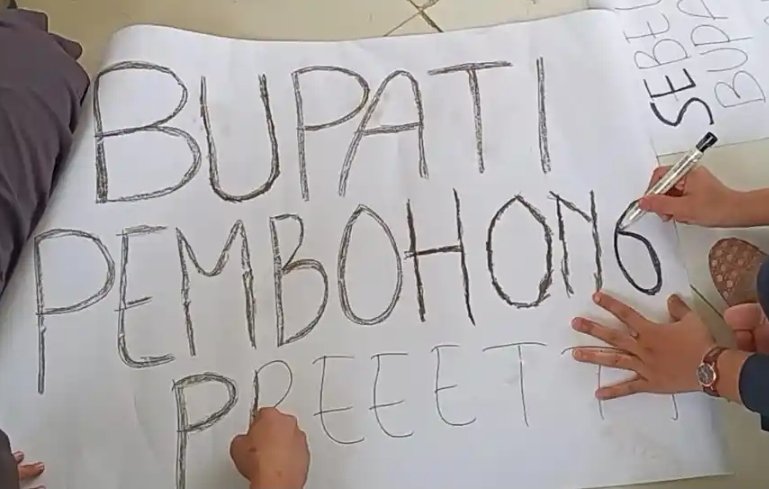 BUPATI
PEMBOHONG
PREEETTT
SEBE
BUPA